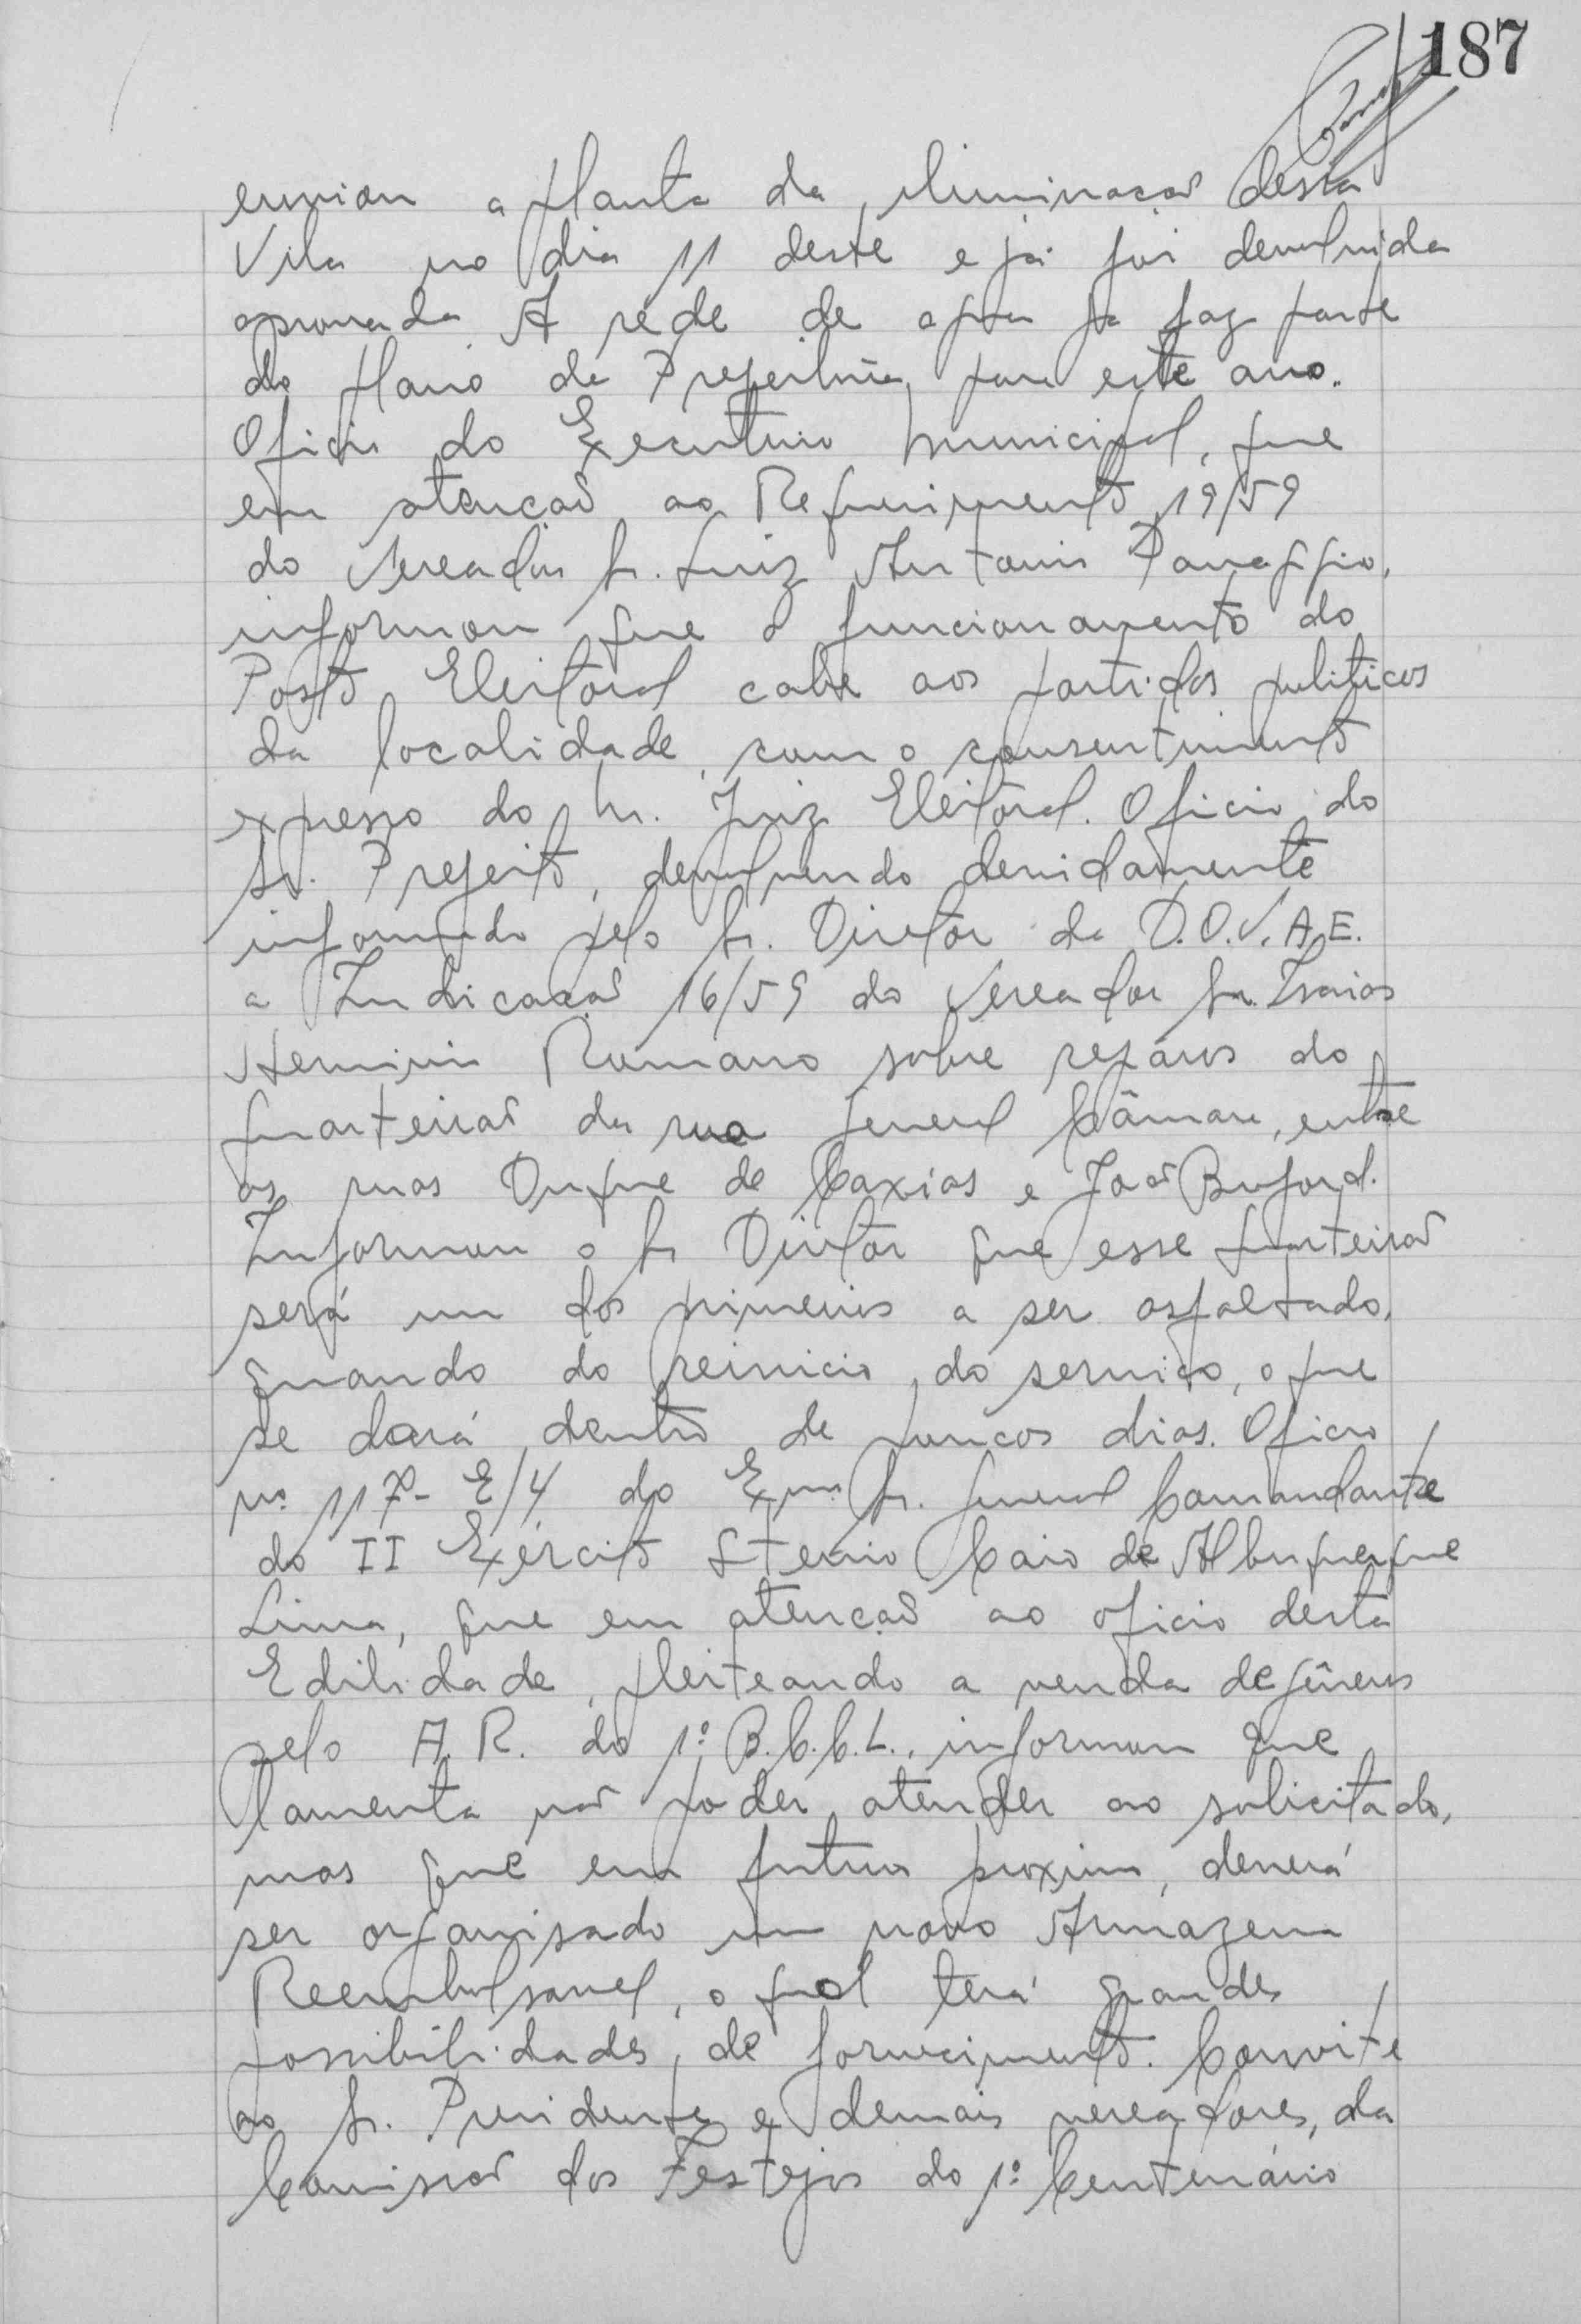 187
enviou a planta da iluminação desta
Vila no dia 11 deste e já foi devolvida
aprovada. A rêde de agua já faz parte
do plano da Prefeitura para este ano.
Oficio do Executivo Municipal, que
em atenção ao Requerimento 19/59
do Vereador Sr. Luiz Antonio Panaggio,
informou que o funcionamento do
Posto Eleitoral cabe aos partidos politicos
da localidade, com o consentimento
expresso do Sr. Juiz Eleitoral. Oficio do
Sr. Prefeito, devolvendo devidamente
informado pelo Sr. Diretor da D.O.V.A.E.
a Indicação 16/59 do Vereador Sr. Isaias
Herminio Romano sobre reparos do
quarteirão da rua General Câmara, entre
as ruas Duque de Caxias e João Buford.
Informou o Sr Diretor que esse quarteirão
será um dos primeiros a ser asfaltado,
quando do reinicio do serviço, o que
se dará dentro de poucos dias. Oficio
nº 117- E/4 do Exmo Sr. General Comandante
do II Exército Stenio Caio de Albuquerque
Lima, que em atenção ao oficio desta
Edilidade, pleiteando a venda de gêneros
pelo A. R. do 1º B.C.C.L., informou que
lamenta não poder atender ao solicitado,
mas que em futuro proximo, deverá
ser organisado um novo Armazem
Reembolsavel, o qual terá grandes
possibilidades de fornecimento. Convite
ao Sr. Presidente e demais vereadores, da
Comissão dos Festejos do 1º Centenário